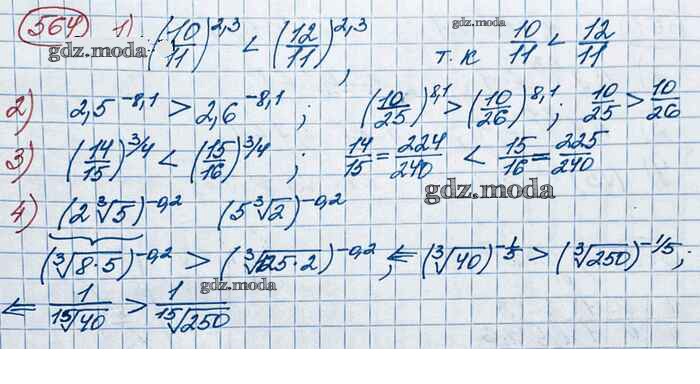 564 1) (10/11)^2,3 < (12/11)^2,3, т.к 10/11 < 12/11
gdz.moda
gdz.moda
2) 2,5^-8,1 > 2,6^-8,1; (10/25)^8,1 > (10/26)^8,1; 10/25 > 10/26
3) (14/15)^3/4 < (15/16)^3/4; 14/15 = 224/240 < 15/16 = 225/240
gdz.moda
4) (2∛5)^-0,2 (5∛2)^-0,2
(∛8·5)^-0,2 > (∛125·2)^-0,2, ⇐ (∛40)^-1/5 > (∛250)^-1/5;
gdz.moda
⇐ 1/¹⁵√40 > 1/¹⁵√250
gdz.moda